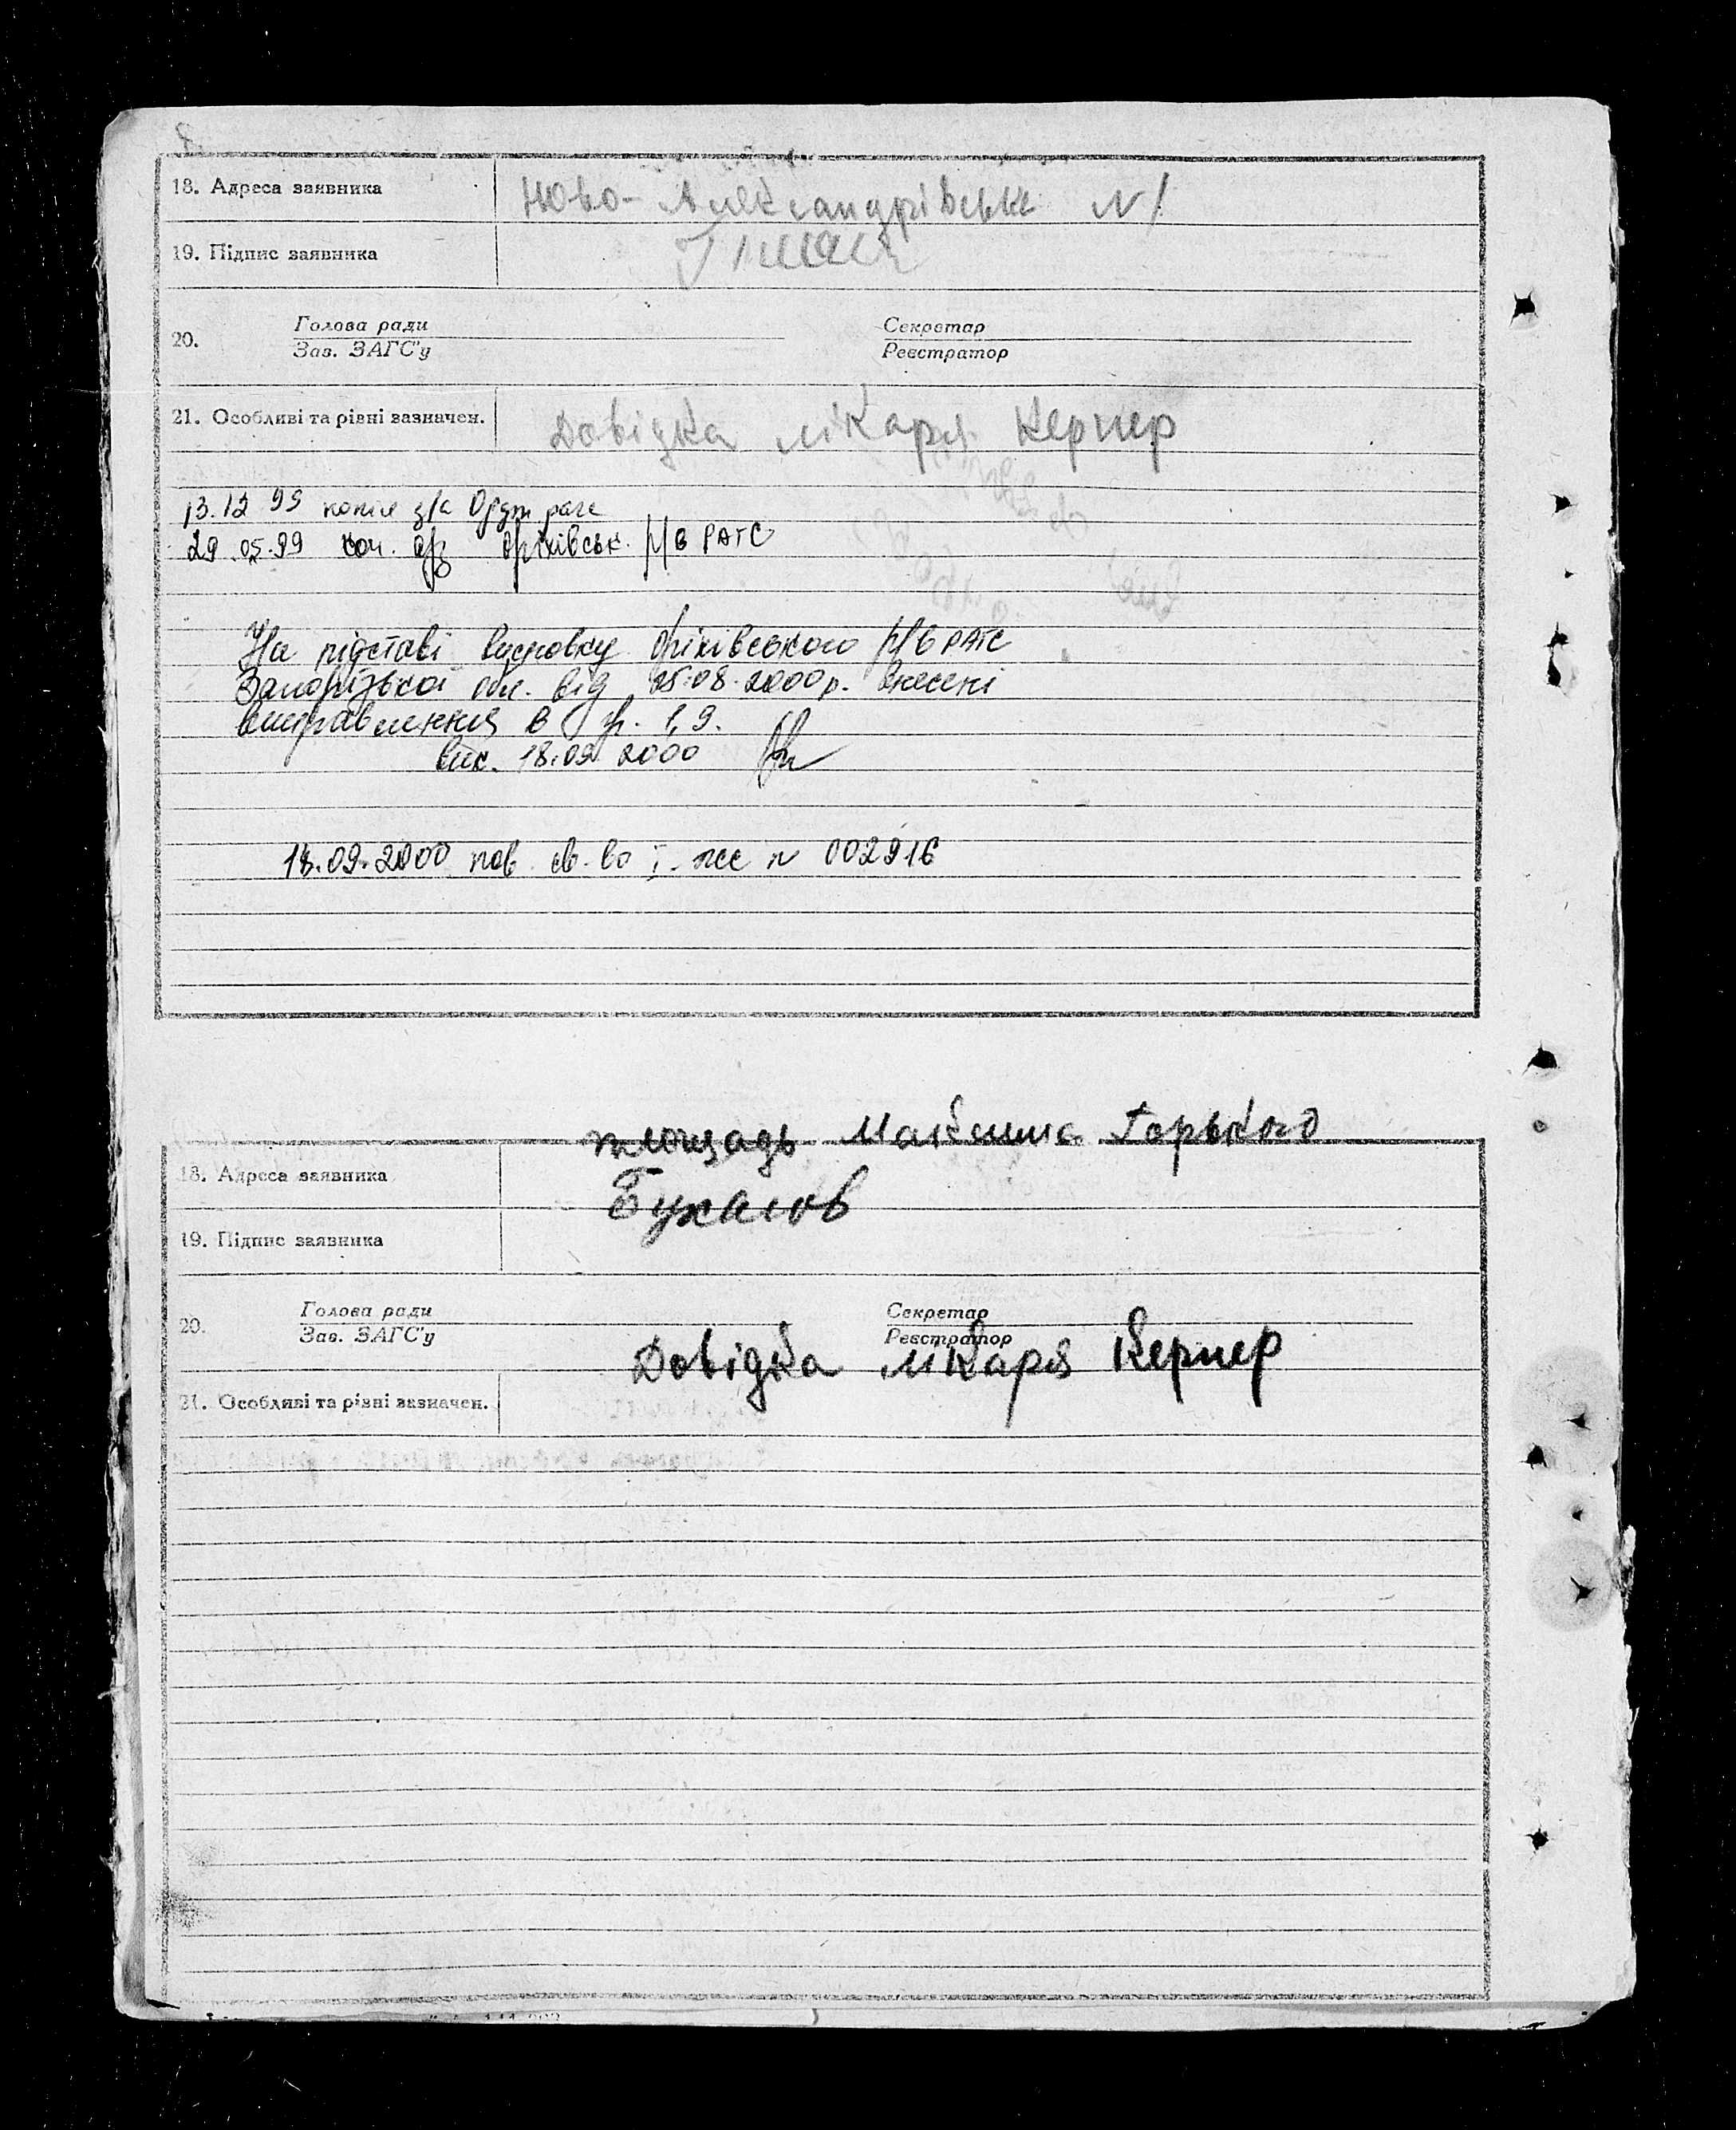 18. Адреса заявника Ново-Александрівська N 1
19. Підпис заявника
20. Голова ради Секретар
Зав. ЗАГС'у Реєстратор
21. Особливі та рівні зазначен. Довідка лікаря Кернер
13.12 99 копія з/а
29.05.99 Оріхівськ. р/в РАГС
На підставі висновку Оріхівського р/в РАГС
Запорізької обл. від 25.08.2000р. внесені
виправлення в гр. 1,9.
вик. 18.09 2000
18.09.2000 пов. св-во І-жс N 002916
площадь Максима Горького
18. Адреса заявника
Бухалов
19. Підпис заявника
20. Голова ради Секретар
Зав. ЗАГС'у Реєстратор
Довідка лікаря Кернер
21. Особливі та рівні зазначен.